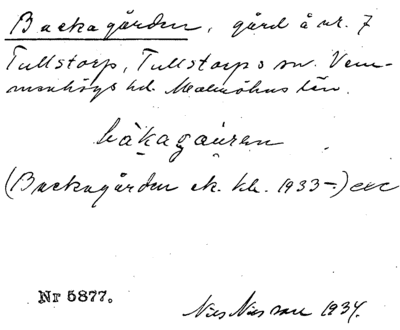 Backagården, gård å nr. 7
Tullstorp, Tullstorps sn. Vem-
menhögs hd. Malmöhus län.
bàkagáuren
(Backagården ek. kb. 1933-)
Nr 5877.
Nils Nilsson 1934.